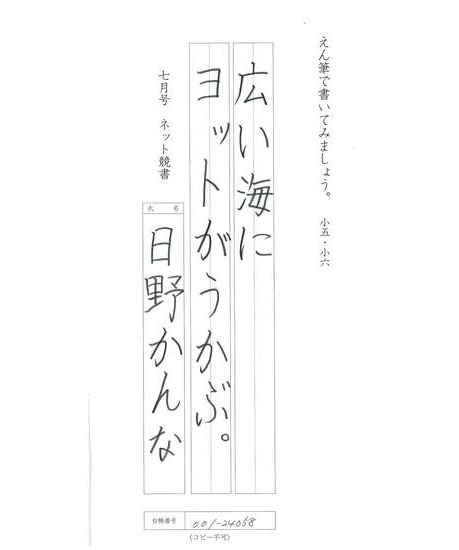 えん筆で書いてみましょう。 小五・小六
広い海に
ヨットがうかぶ。
七月号 ネット競書
氏 名
日野かんな
台帳番号 001-24058
(コピー不可)